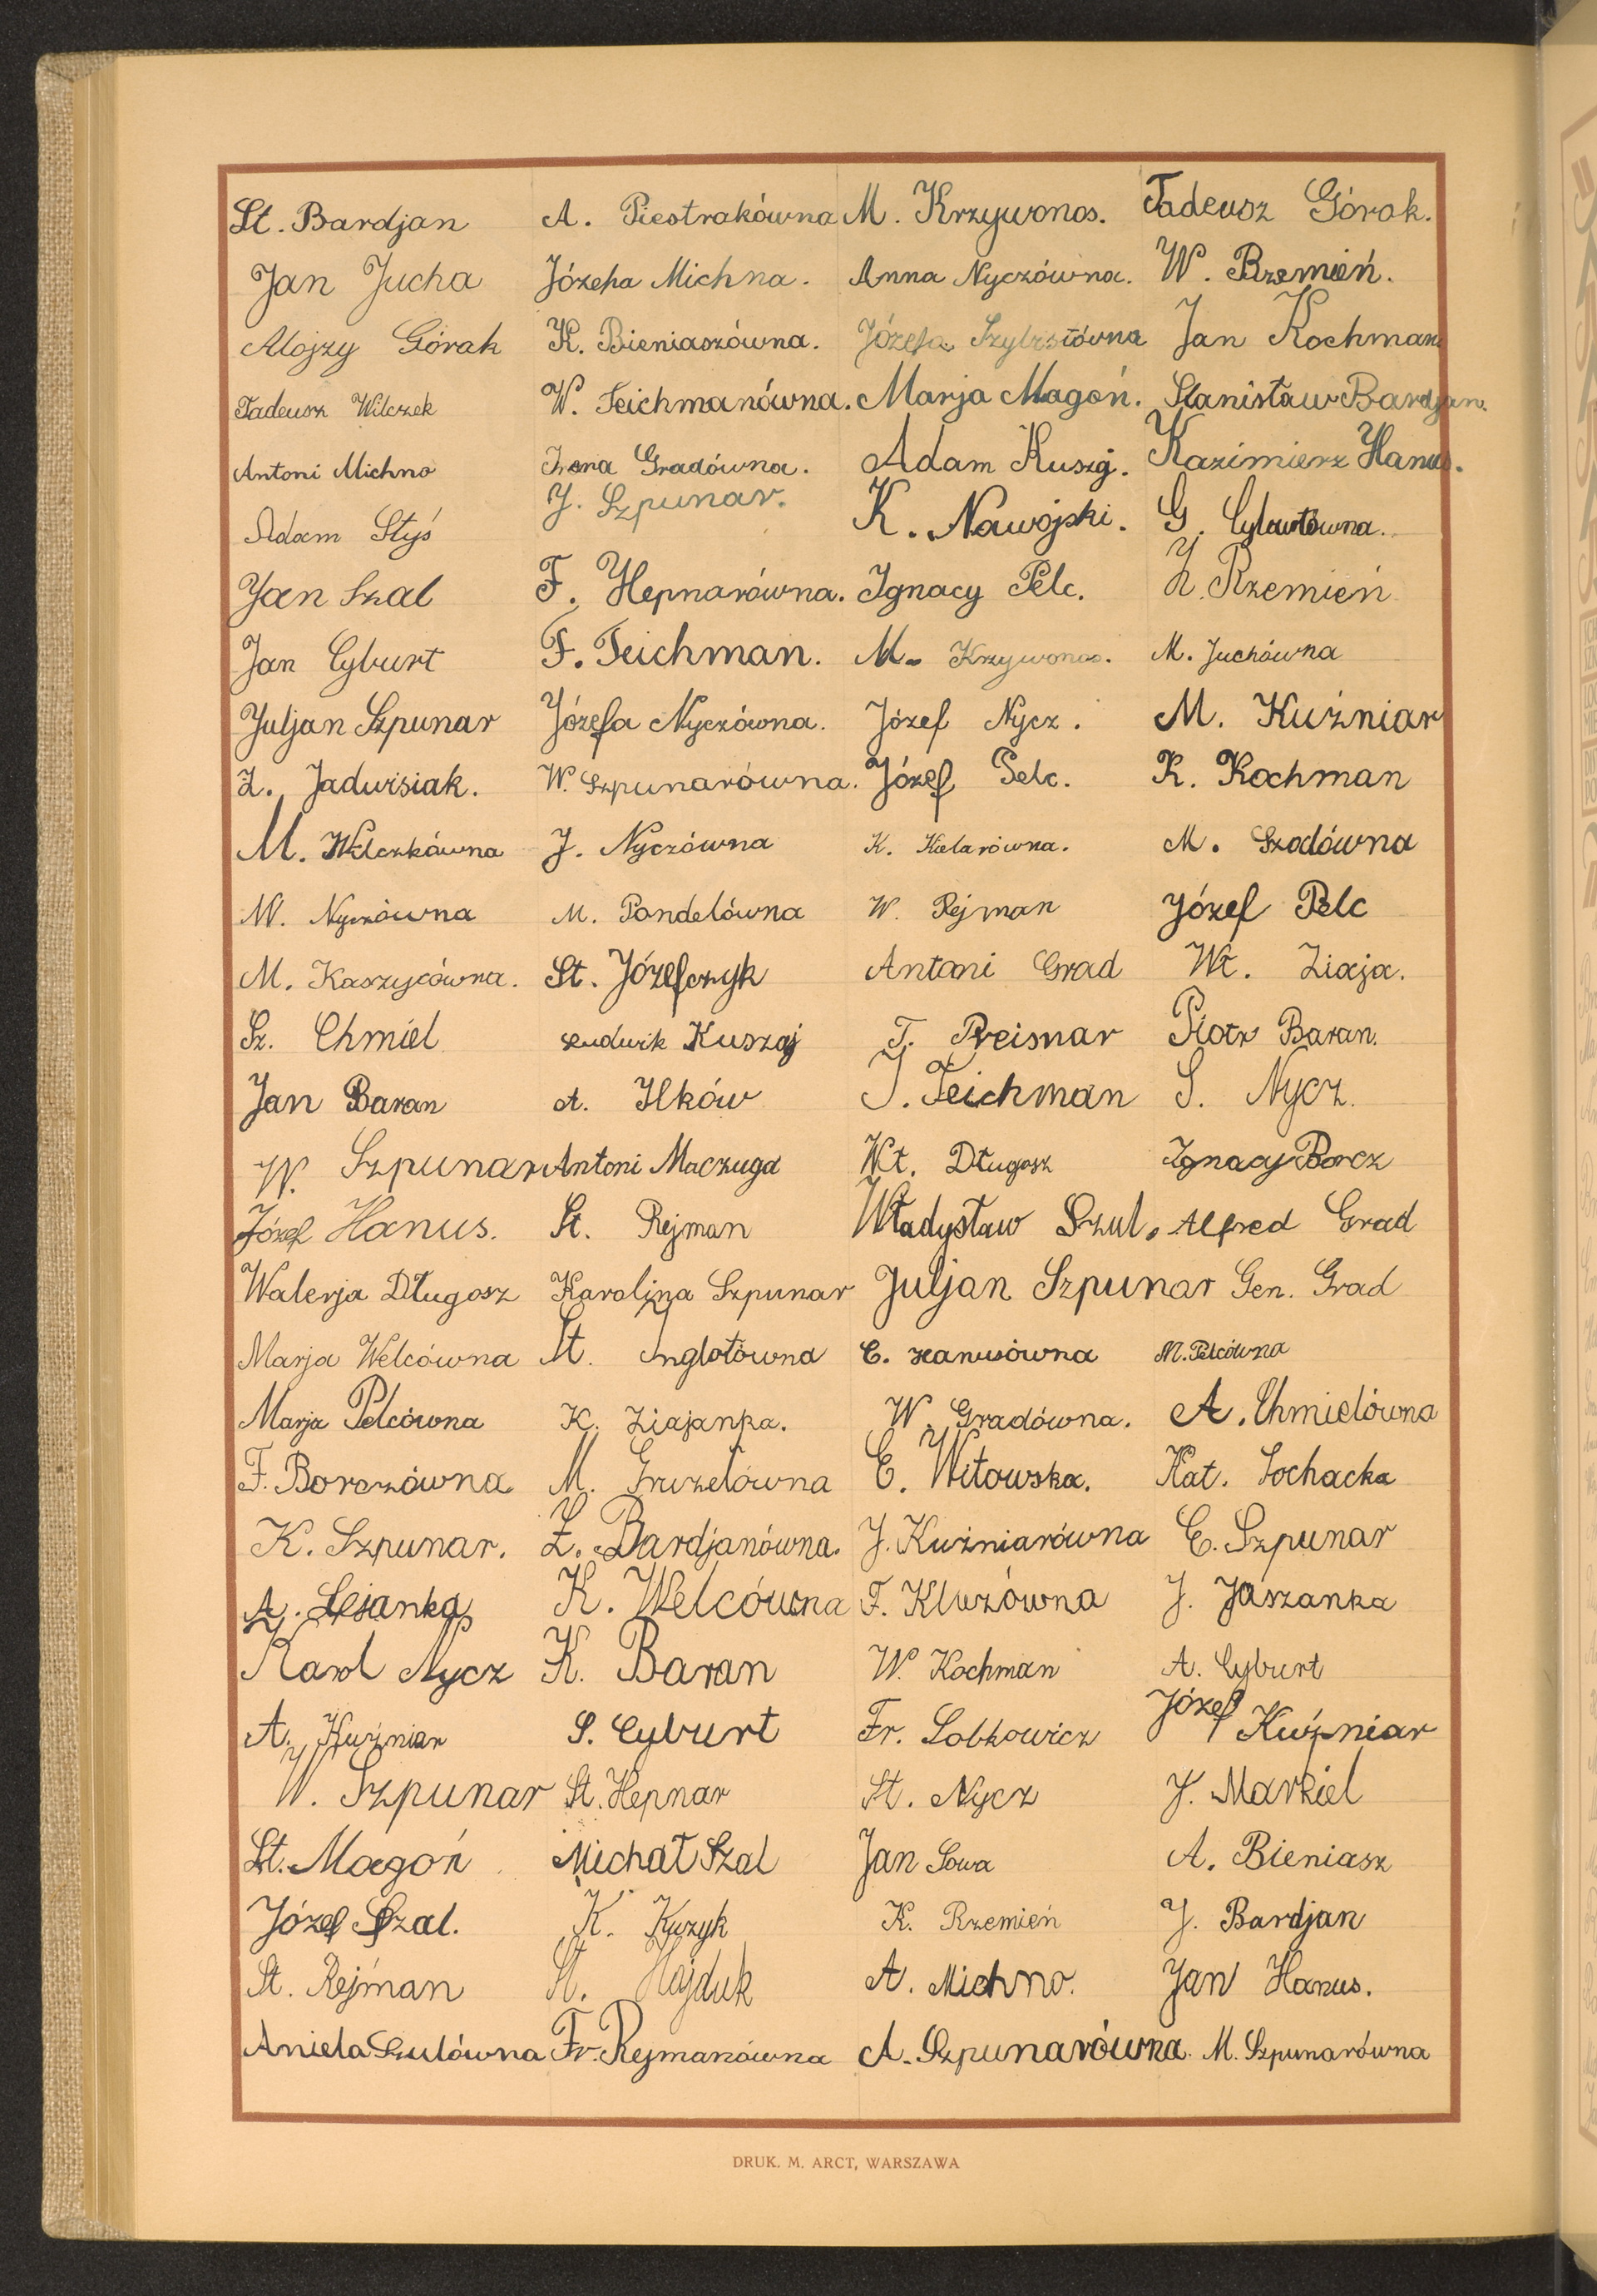 St. Bardjan A. Piestrakówna M. Krzywonos. Tadeusz Górak.
Jan Jucha Józefa Michna. Anna Nyczówna. W. Rzemień.
Alojzy Górak K. Bieniaszówna. Józefa Jan Kochman
Tadeusz Wilczek W. Teichmanówna. Marja Magoń. Stanisław Bardjan.
Antoni Michno Irena Gradówna. Adam Kuszaj. Kazimierz Hanus.
Adam Styś J. Szpunar. K. Nawojski. G. Cyburtówna.
Jan Szal F. Hepnarówna. Ignacy Pelc. Z. Rzemień
Jan Cyburt F. Teichman. M. Krzywonos. M. Juchówna
Juljan Szpunar Józefa Nyczówna. Józef Nycz. M. Kuźniar
Z. Jadwisiak. W. Szpunarówna. Józef Pelc. K. Kochman
M. Wilczkówna J. Nyczówna K. Kielarówna. M. Szodówna
W. Nyczówna M. Pondelówna W. Rejman Józef Pelc
M. Kaszycówna. St. Józefczyk Antoni Grad Wł. Ziaja.
Sz. Chmiel Ludwik Kuszaj T. Preisnar Piotr Baran.
Jan Baran A. Ilków J. Teichman S. Nycz.
W. Szpunar Antoni Maczuga Wł. Długosz Ignacy Borcz
Józef Hanus. St. Rejman Władysław Szul. Alfred Grad
Walerja Długosz Karolina Szpunar Juljan Szpunar Gen. Grad
Marja Welcówna St. Inglotówna C. Hanusówna M. Pelcówna
Marja Pelcówna K. Ziajanka. W. Gradówna. A. Chmielówna
F. Borczówna M. Gruzelówna E. Witowska. Kat. Sochacka
K. Szpunar. Z. Bardjanówna. J. Kuźniarówna C. Szpunar
A. Lejanka K. Welcówna F. Kluzówna J. Jaszanka
Karol Nycz K. Baran W. Kochman A. Cyburt
A. Kuźniar S. Cyburt Fr. Sobkowicz Józef Kuźniar
W. Szpunar St. Hepnar St. Nycz J. Markiel
St. Magoń Michał Szal Jan Sowa A. Bieniasz
Józef Szal. K. Kuzyk K. Rzemień J. Bardjan
St. Rejman St. Hajduk A. Michno. Jan Hanus.
Aniela Szulówna Fr. Rejmanówna A. Szpunarówna. M. Szpunarówna
DRUK. M. ARCT, WARSZAWA